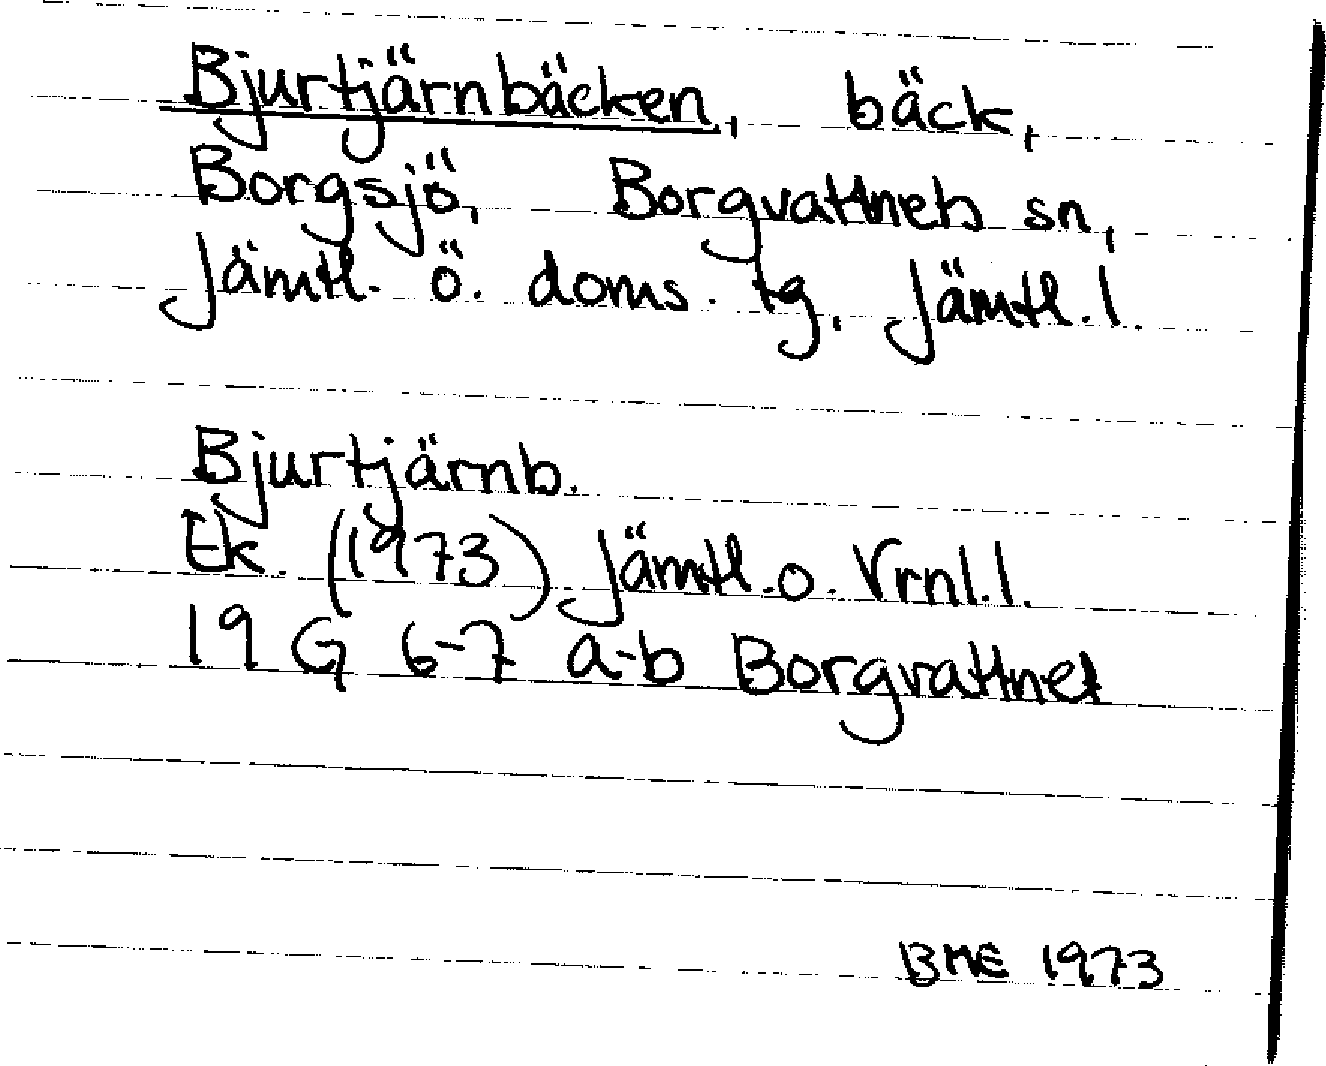 Bjurtjärnbäcken, bäck,
Borgsjö, Borgvattnets sn,
Jämtl. ö. doms. tg, Jämtl. l.
Bjurtjärnb.
Ek. (1973) Jämtl. o. Vrnl. l.
19 G 6-7 a-b Borgvattnet
BME 1973